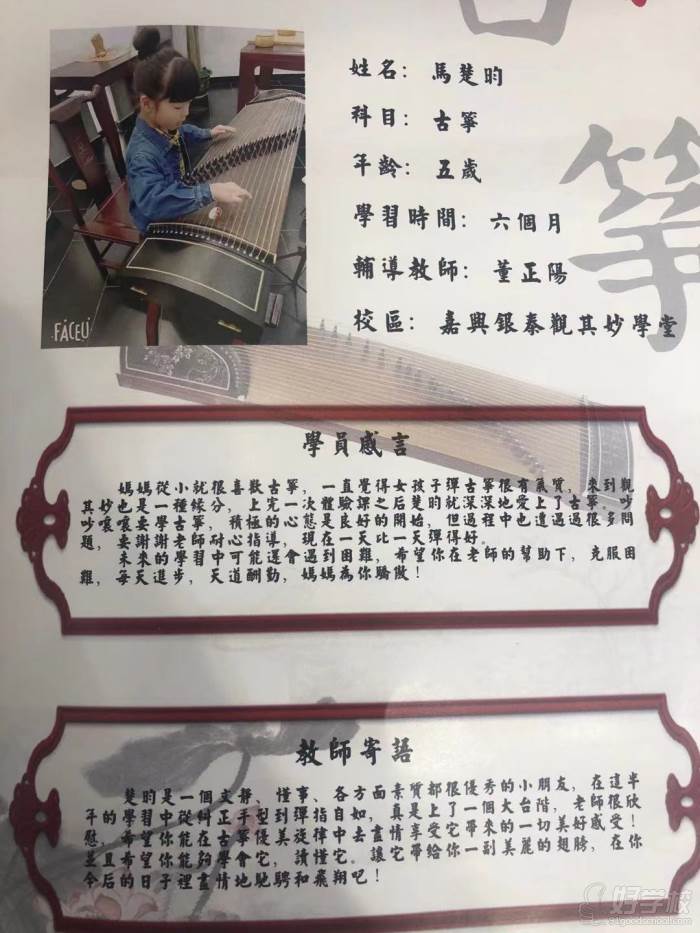 筝
姓名：馬楚昀
科目：古箏
年齡：五歲
學習時間：六個月
輔導教師：董正陽
校區：嘉興銀泰觀其妙學堂
FACEU
學員感言
媽媽從小就很喜歡古箏，一直覺得女孩子彈古箏很有氣質，來到觀
其妙也是一種緣分，上完一次體驗課之后楚昀就深深地愛上了古箏。吵
吵嚷嚷要學古箏，積極的心態是良好的開始，但過程中也遭遇過很多問
題，要謝謝老師耐心指導，現在一天比一天彈得好。
未來的學習中可能還會遇到困難，希望你在老師的幫助下，克服困
難，每天進步，天道酬勤，媽媽為你驕傲！
教師寄語
楚昀是一個文靜、懂事、各方面素質都很優秀的小朋友，在這半
年的學習中從糾正手型到彈指自如，真是上了一個大台階，老師很欣
慰，希望你能在古箏優美旋律中去盡情享受它帶來的一切美好感受！
並且希望你能夠學會它，讀懂它。讓它帶給你一副美麗的翅膀，在你
今后的日子裡盡情地馳騁和飛翔吧！
好学校
91goodschool.com